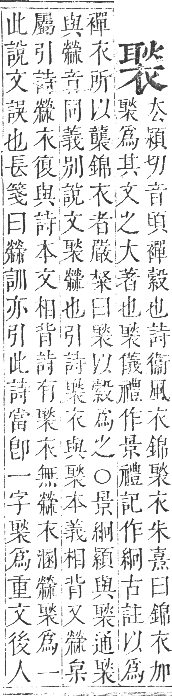 褧 去穎切音頃襌縠也詩衞風衣錦褧衣朱熹曰錦衣加
褧爲其文之大著也褧儀禮作景禮記作絅古註以爲
襌衣所以襲錦衣者嚴粲曰褧以縠爲之○景絅穎與褧通褧
與檾音同義别說文褧檾也引詩褧衣與褧本義相背又檾枲
屬引詩檾衣復與詩本文相背詩有褧衣無檾衣溷檾褧爲一
此說文誤也長箋曰檾訓亦引此詩當卽一字褧爲重文後人